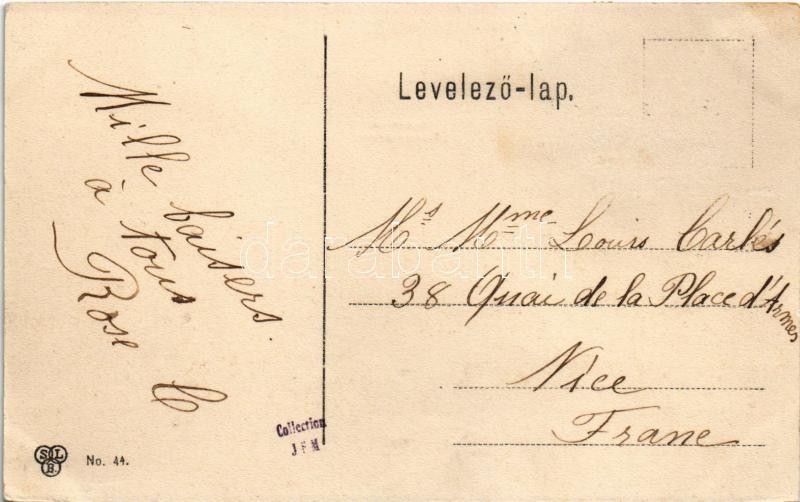 Levelező-lap.
Mille baisers.
à tous
Rose C
Ms Mme Louis Carlés
38 Quai de la Place d'Armes
Nice
Franc
Collection
J F M
SLB
No. 44.
darabanth